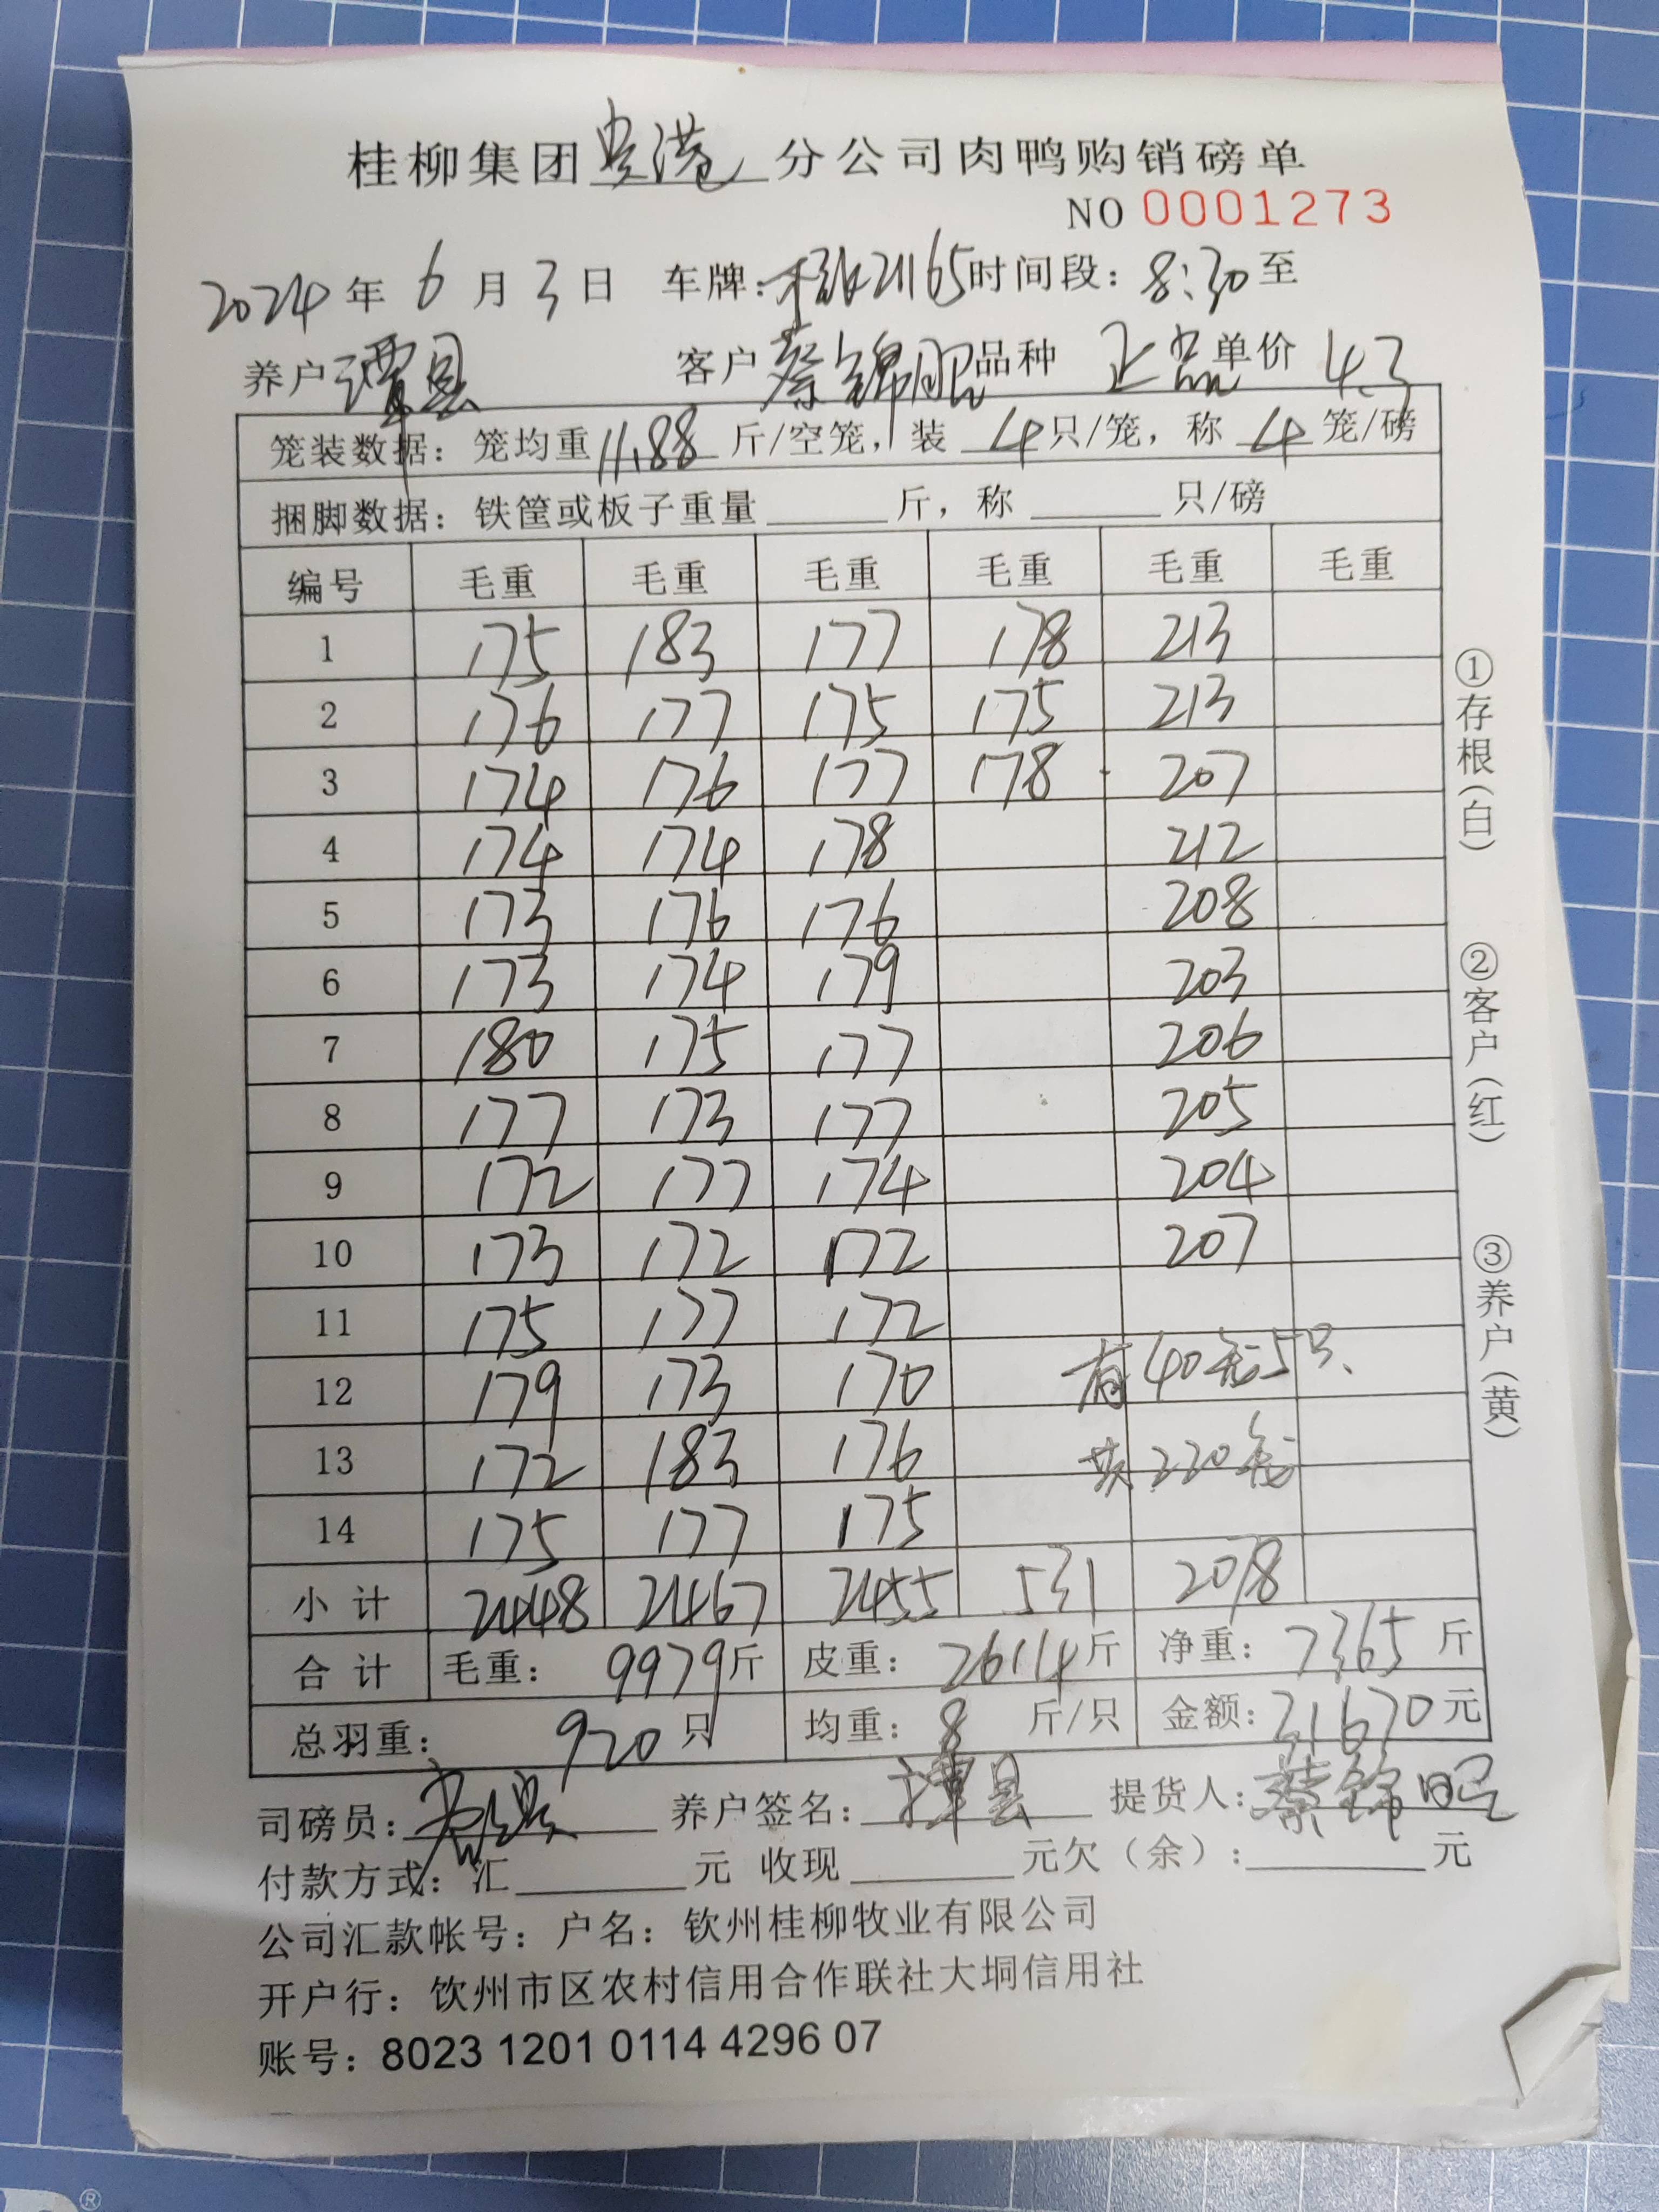 桂柳集团贵港分公司肉鸭购销磅单
NO 0001273
2024年 6月 3日 车牌: 21165 时间段: 8:30 至
养户 覃昙 客户 蔡锦昭 品种 正品 单价 4.3
笼装数据: 笼均重 11.88 斤/空笼, 装 4 只/笼, 称 4 笼/磅
捆脚数据: 铁筐或板子重量 斤, 称 只/磅
编号 毛重 毛重 毛重 毛重 毛重 毛重
1 175 183 177 178 213
2 176 177 175 175 213
3 174 176 177 178 207
4 174 174 178 212
5 173 176 176 208
6 173 174 179 203
7 180 175 177 206
8 177 173 177 205
9 172 177 174 204
10 173 172 172 207
11 175 177 172
12 179 173 170 有40笼5只、
13 172 183 176 共220笼
14 175 177 175
小计 2448 2467 2455 531 2078
合计 毛重: 9979斤 皮重: 2614斤 净重: 7365 斤
总羽重: 920 只 均重: 8 斤/只 金额: 31670元
司磅员: 养户签名: 覃昙 提货人: 蔡锦昭
付款方式: 汇 元 收现 元欠(余): 元
公司汇款帐号: 户名: 钦州桂柳牧业有限公司
开户行: 钦州市区农村信用合作联社大垌信用社
账号: 8023 1201 0114 4296 07
①存根(白)
②客户(红)
③养户(黄)